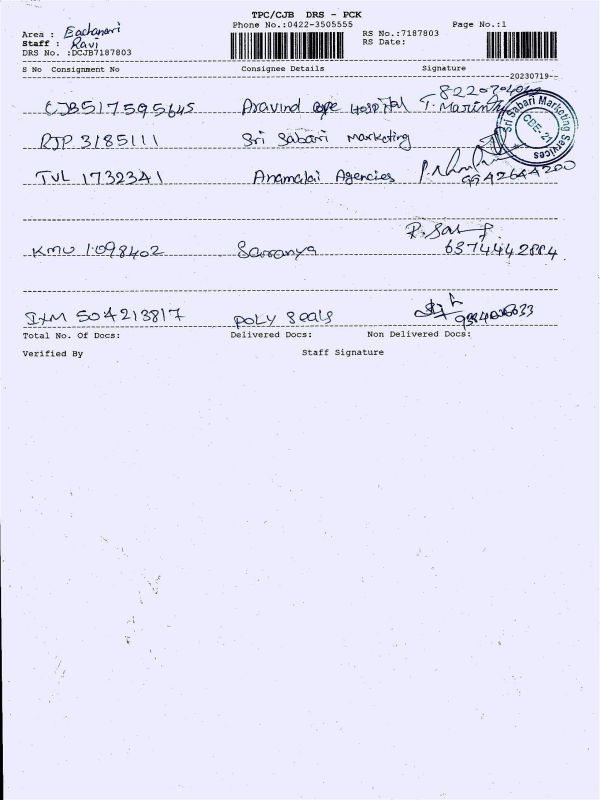 TPC/CJB DRS - PCK
Area : Eachanari
Phone No.:0422-3505555
Page No.:1
Staff : Ravi
RS No.:7187803
DRS No. :DCJB7187803
RS Date:
S No Consignment No Consignee Details Signature
20230719
CJB517595645 Aravind eye Hospital T.
RJP 3185111 Sri Sabari Marketing
Sri Sabari Marketing Services
CBE- 21
TVL 1732341 Anamalai Agencies
9942644200
KMU 1098402 Saranya
6374442884
IXM 504213817 POLY Seals
Total No. Of Docs: Delivered Docs: Non Delivered Docs:
Verified By Staff Signature